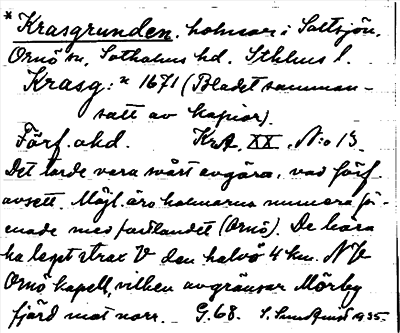 * Krasgrunden, holmar i Saltsjön,
Ornö sn, Sotholms hd. Sthlms l.
Krasg: * 1671 (Bladet samman-
satt av kopior).
Förf. okd. KrA, XX, N:o 13.
Det torde vara svårt avgöra, vad förf.
avsett. Möjl. äro holmarna numera för-
enade med fastlandet (Ornö). De böra
ha legat strax V den halvö 4 km. NV
Ornö kapell, vilken avgränsar Mörby
fjärd mot norr. G. 68. 1935.